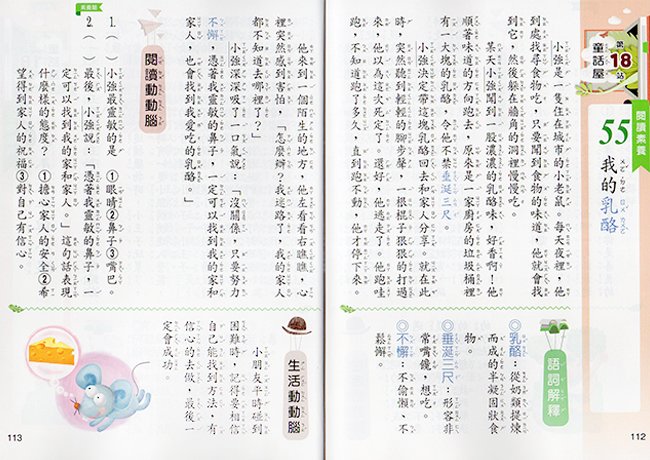 第18站
童話屋
閱讀素養
55
我的乳酪
小強是一隻住在城市的小老鼠。每天夜裡，他
到處找尋食物吃，只要聞到食物的味道，他就會找
到它，然後躲在牆角的洞裡慢慢吃。
某天小強聞到一股濃濃的乳酪味，好香啊！他
順著味道的方向跑去，原來是一家廚房的垃圾桶裡
有一大塊的乳酪，令他不禁垂涎三尺。
小強決定帶這塊乳酪回去和家人分享。就在此
時，突然聽到輕輕的腳步聲，一根棍子狠狠的打過
來，他以為這次死定了，還好，他逃走了。他跑哇
跑，不知道跑了多久，直到跑不動，他才停下來。
語詞解釋
◎乳酪：從奶類提煉
而成的半凝固狀食
物。
◎垂涎三尺：形容非
常嘴饞，想吃。
◎不懈：不偷懶、不
鬆懈。
112
他來到一個陌生的地方，他左看看右瞧瞧，心
裡突然感到害怕，「怎麼辦？我迷路了，我的家人
都不知道去哪裡了？」
小強深深吸了一口氣說：「沒關係，只要努力
不懈，憑著我靈敏的鼻子，一定可以找到我的家和
家人，也會找到我愛吃的乳酪。」
閱讀動動腦
1.（　）小強最靈敏的是 ①眼睛②鼻子③嘴巴。
2.（　）最後，小強說：「憑著我靈敏的鼻子，一
定可以找到我的家和家人。」這句話表現
什麼樣的態度？ ①擔心家人的安全②希
望得到家人的祝福③對自己有信心。
生活動動腦
小朋友平時碰到
困難時，記得要相信
自己能找到方法，有
信心的去做，最後一
定會成功
113